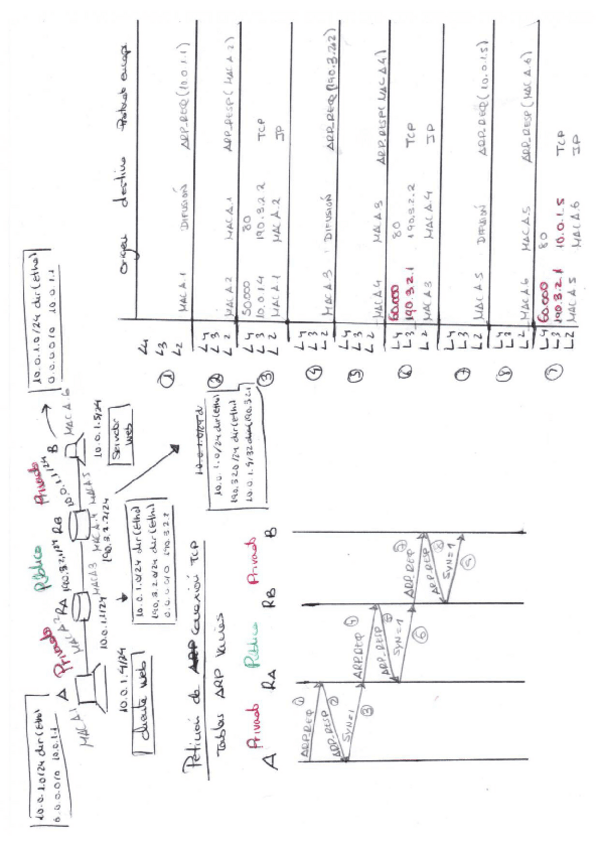 10.0.1.0/24 dir (Eth0)
0.0.0.0/0 10.0.1.1
A Privado RA Público RB Privado B
MAC A1 MAC A2 MAC A3 MAC A4 MAC A5 MAC A6
10.0.1.4/24
10.0.1.1/24
190.3.2.1/24
190.3.2.2/24
10.0.1.1/24
10.0.1.5/24
cliente web
Servidor
web
10.0.1.0/24 dir (Eth0)
0.0.0.0/0 10.0.1.1
10.0.1.0/24 dir (Eth0)
190.3.2.0/24 dir (Eth1)
0.0.0.0/0 190.3.2.2
10.0.1.0/24 di
10.0.1.0/24 dir (Eth0)
190.3.2.0/24 dir (Eth1)
Petición de ARP conexión TCP
Tablas ARP Vacías
Privado Público Privado
A RA RB B
ARP.REQ 1
ARP.RESP 2
SYN=1 3
ARP.REQ 4
ARP.RESP 5
SYN=1 6
ARP.REQ 7
ARP.RESP 8
SYN=1 9
origen destino Protocolo encap
L4
L3
1 L2 MAC A1 DIFUSIÓN ARP.REQ (10.0.1.1)
L4
2 L3
L2 MAC A2 MAC A1 ARP.RESP (MAC A2)
L4 50.000 80
3 L3 10.0.1.4 190.3.2.2 TCP
L2 MAC A1 MAC A2 IP
L4
4 L3
L2 MAC A3 DIFUSIÓN ARP.REQ (190.3.2.2)
L4
5 L3
L2 MAC A4 MAC A3 ARP.RESP (MAC A4)
L4 60.000 80
6 L3 190.3.2.1 190.3.2.2 TCP
L2 MAC A3 MAC A4 IP
L4
7 L3
L2 MAC A5 DIFUSIÓN ARP.REQ (10.0.1.5)
L4
8 L3
L2 MAC A6 MAC A5 ARP.RESP (MAC A6)
L4 60.000 80
9 L3 190.3.2.1 10.0.1.5 TCP
L2 MAC A5 MAC A6 IP